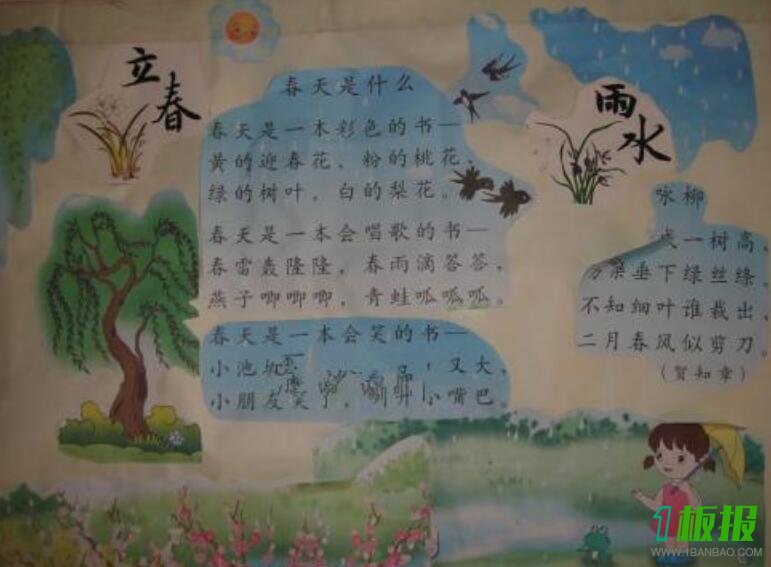 立春
春天是什么
春天是一本彩色的书—
黄的迎春花，粉的桃花，
绿的树叶，白的梨花。
春天是一本会唱歌的书—
春雷轰隆隆，春雨滴答答，
燕子唧唧唧，青蛙呱呱呱。
春天是一本会笑的书—
小池 又大，
小朋友笑了， 小嘴巴。
雨水
咏柳
成一树高，
万条垂下绿丝绦。
不知细叶谁裁出，
二月春风似剪刀。
（贺知章）
1板报
WWW.1BANBAO.COM